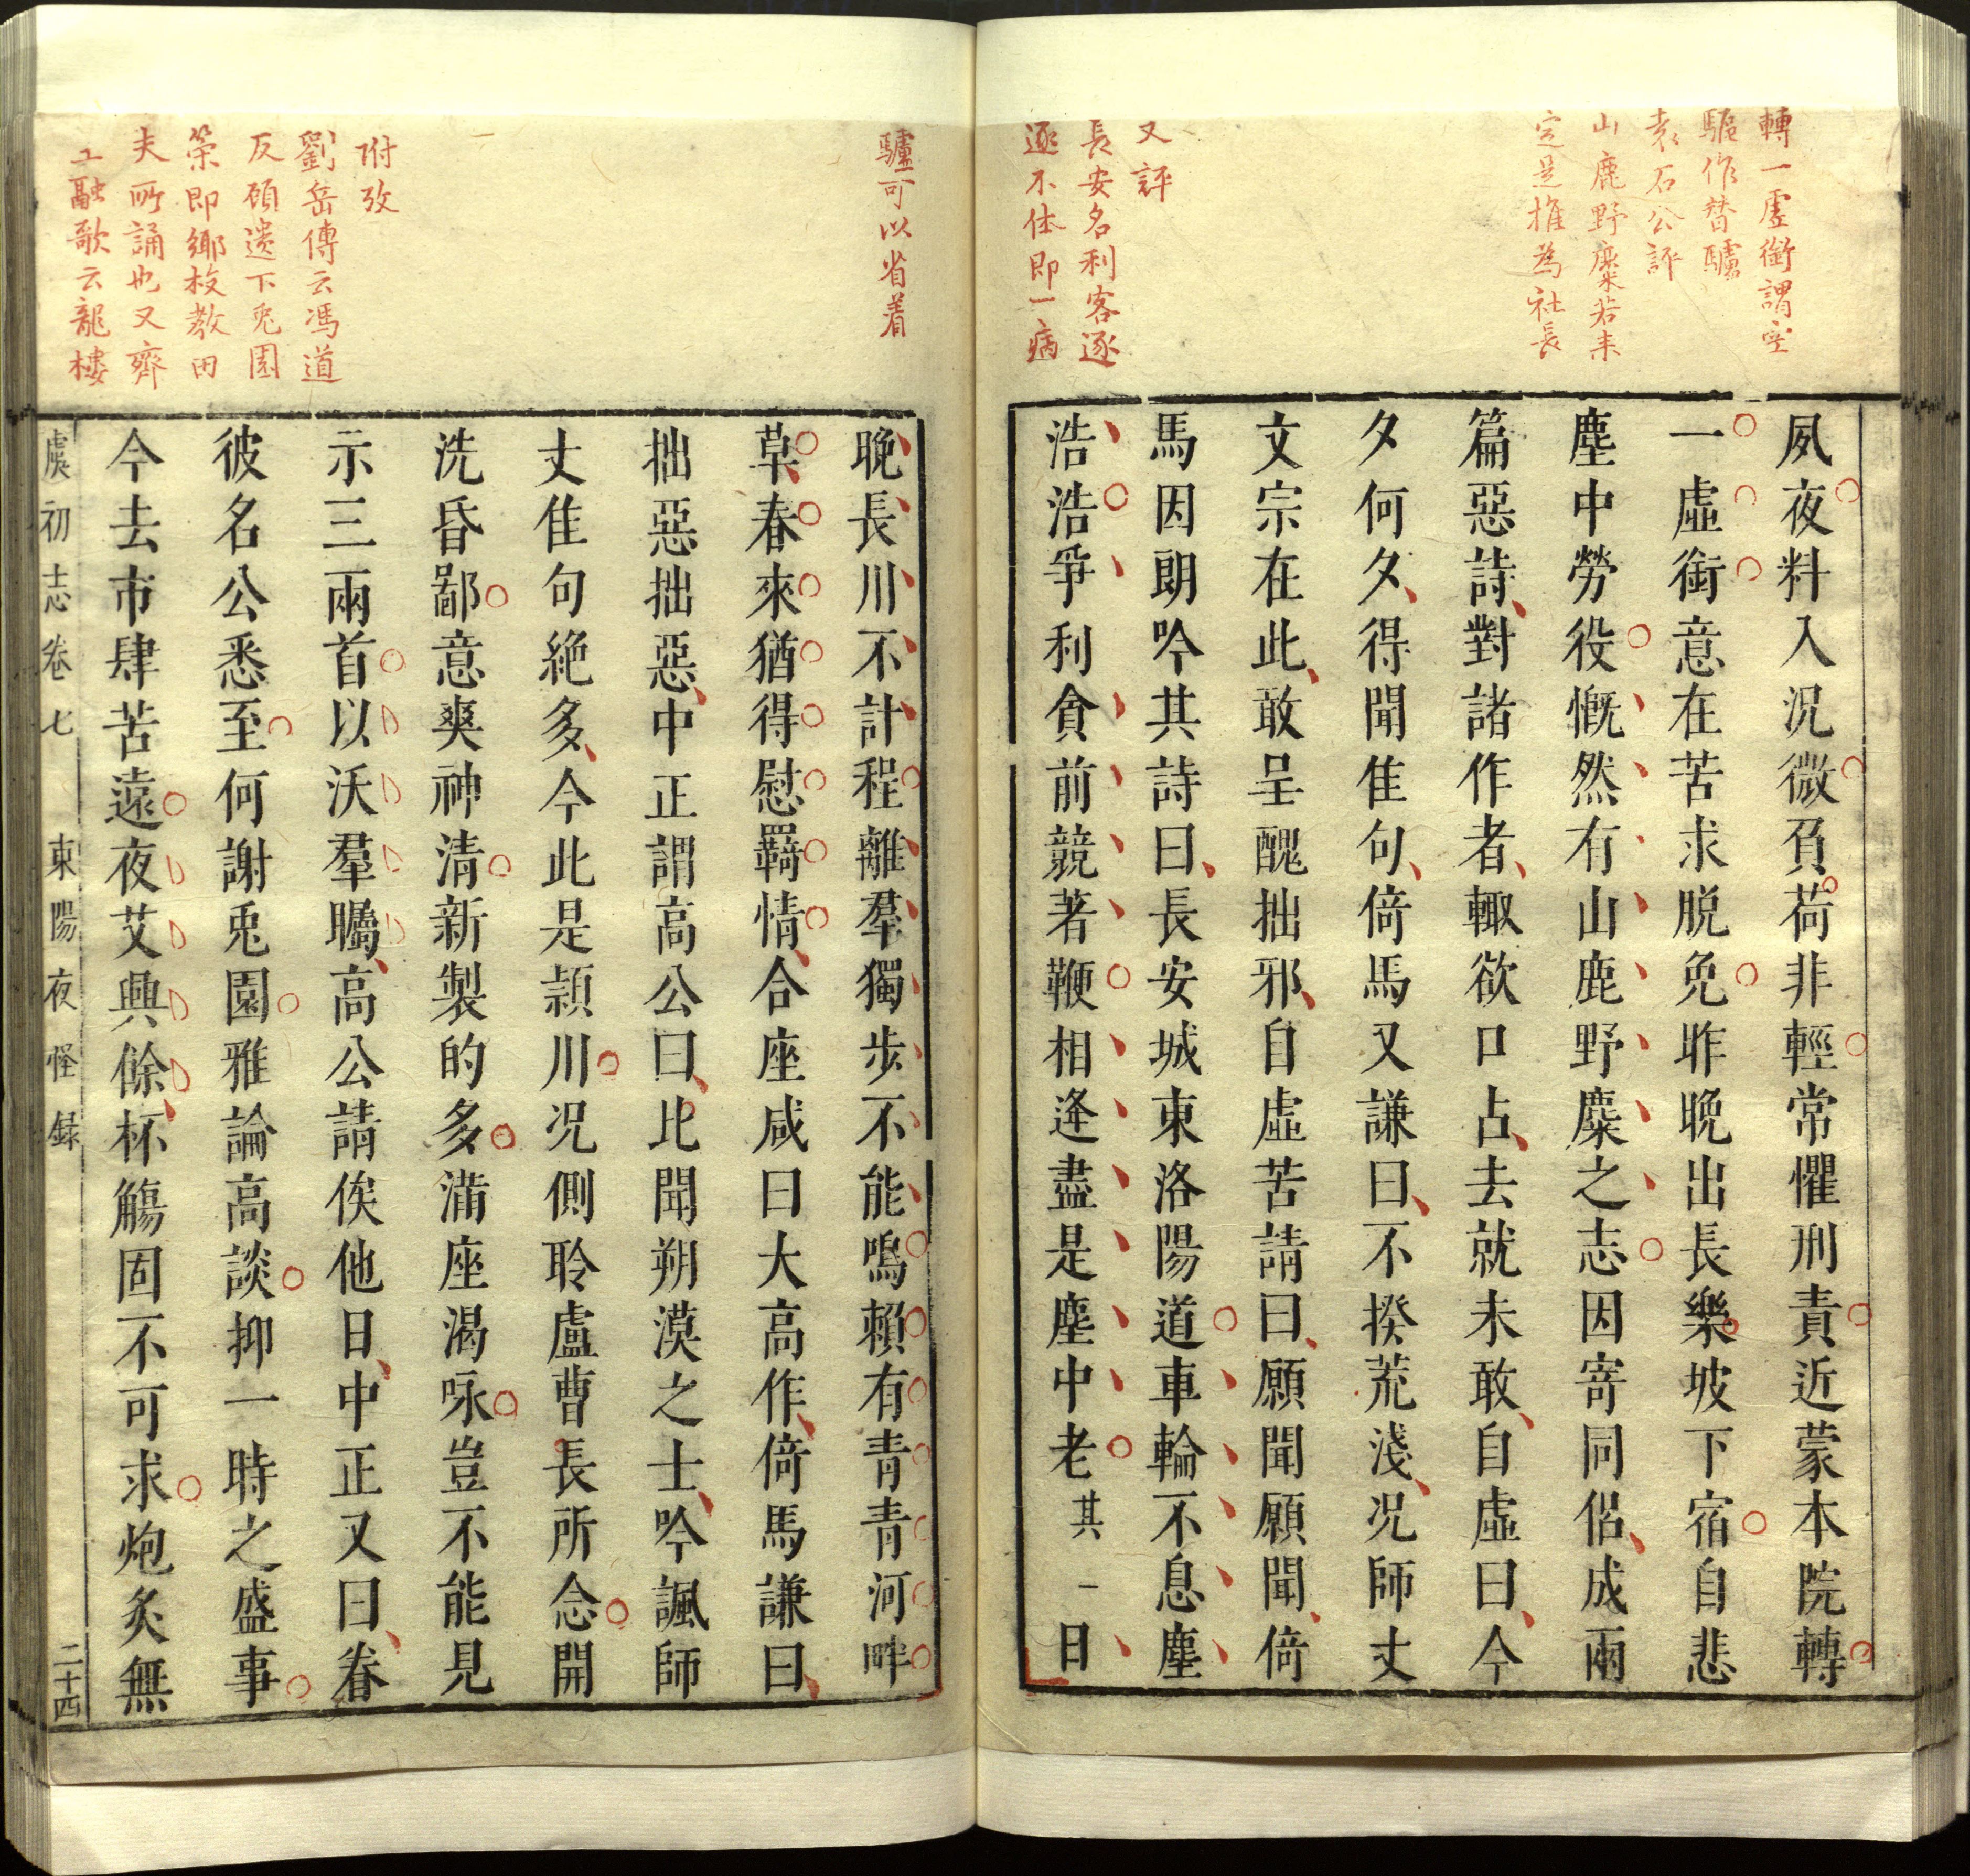 轉一虛銜謂空
驅作替驢
袁石公評
山鹿野麋若來
定是推為社長
又評
長安名利客逐
逐不休即一病
夙夜料入況微負荷非輕常懼刑責近蒙本院轉
一虛銜意在苦求脫免昨晚出長樂坡下宿自悲
塵中勞役慨然有山鹿野麋之志因寄同侶成兩
篇惡詩對諸作者輒欲口占去就未敢自虛曰今
夕何夕得聞佳句倚馬又謙曰不揆荒淺況師丈
文宗在此敢呈醜拙邪自虛苦請曰願聞願聞倚
馬因朗吟其詩曰長安城東洛陽道車輪不息塵
浩浩爭利貪前競著鞭相逢盡是塵中老其一日
驢可以省着
附攷
劉岳傳云馮道
反顧遺下兎園
策即鄉校教田
夫所誦也又齊
王融歌云龍樓
晚長川不計程離羣獨步不能鳴賴有青青河畔
草春來猶得慰羇情合座咸曰大高作倚馬謙曰
拙惡拙惡中正謂高公曰比聞朔漠之士吟諷師
丈佳句絕多今此是潁川況側聆盧曹長所念開
洗昏鄙意爽神清新製的多滿座渴咏豈不能見
示三兩首以沃羣矚高公請俟他日中正又曰眷
彼名公悉至何謝兎園雅論高談抑一時之盛事
今去市肆苦遠夜艾興餘杯觴固不可求炮炙無
虞初志卷七 東陽夜怪録 二十四